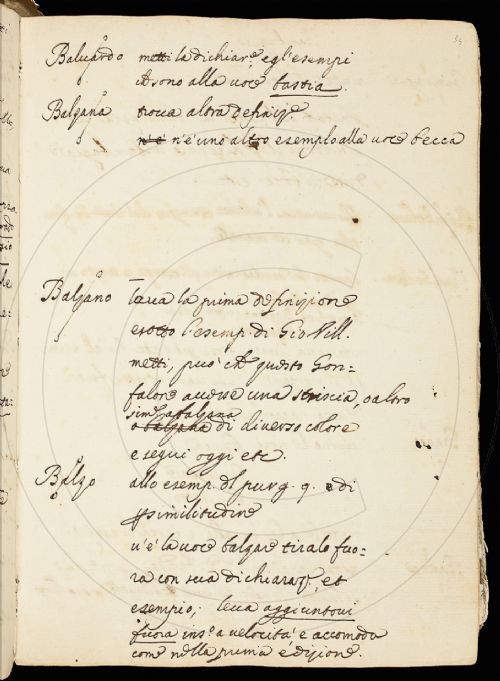 34
Baluardo metti la dichiar.e e gl'esempi
che sono alla voce bastia.
Balzana trova altra definiz.e
n'è n'è uno altro esemplo alla voce becca
Balzano Leva la prima definizione
e sotto l'esemp. di Gio: Vill.
metti, può che questo Gon=
falone avesse una striscia, o altro
sim.e a balzana
o balzana di diverso colore
e segui oggi etc.
Balzo allo esemp. del purg. 9. e di
similitudine
v'è la voce balzare tiralo fuo=
ra con sua dichiaraz.e, et
esempio; leva aggiuntovi
fuora ins.o a velocità e accomoda
come nella prima edizione.